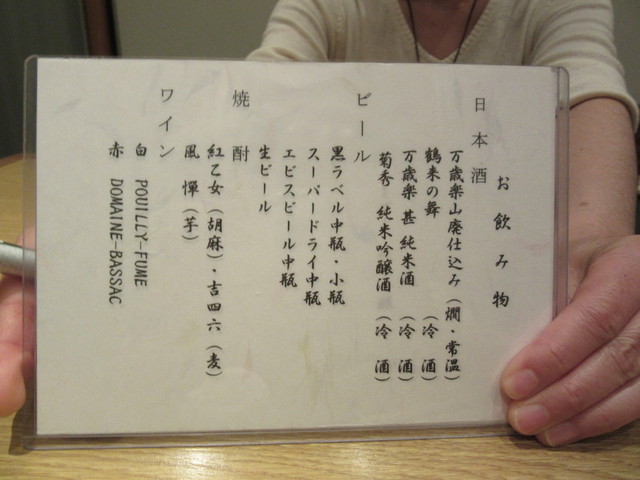 お飲み物
日本酒
万歳楽山廃仕込み（燗・常温）
鶴来の舞（冷酒）
万歳楽 甚 純米酒（冷酒）
菊秀 純米吟醸酒（冷酒）
ビール
黒ラベル中瓶・小瓶
スーパードライ中瓶
エビスビール中瓶
生ビール
焼酎
紅乙女（胡麻）・吉四六（麦）
風憚（芋）
ワイン
白 POUILLY-FUME
赤 DOMAINE-BASSAC